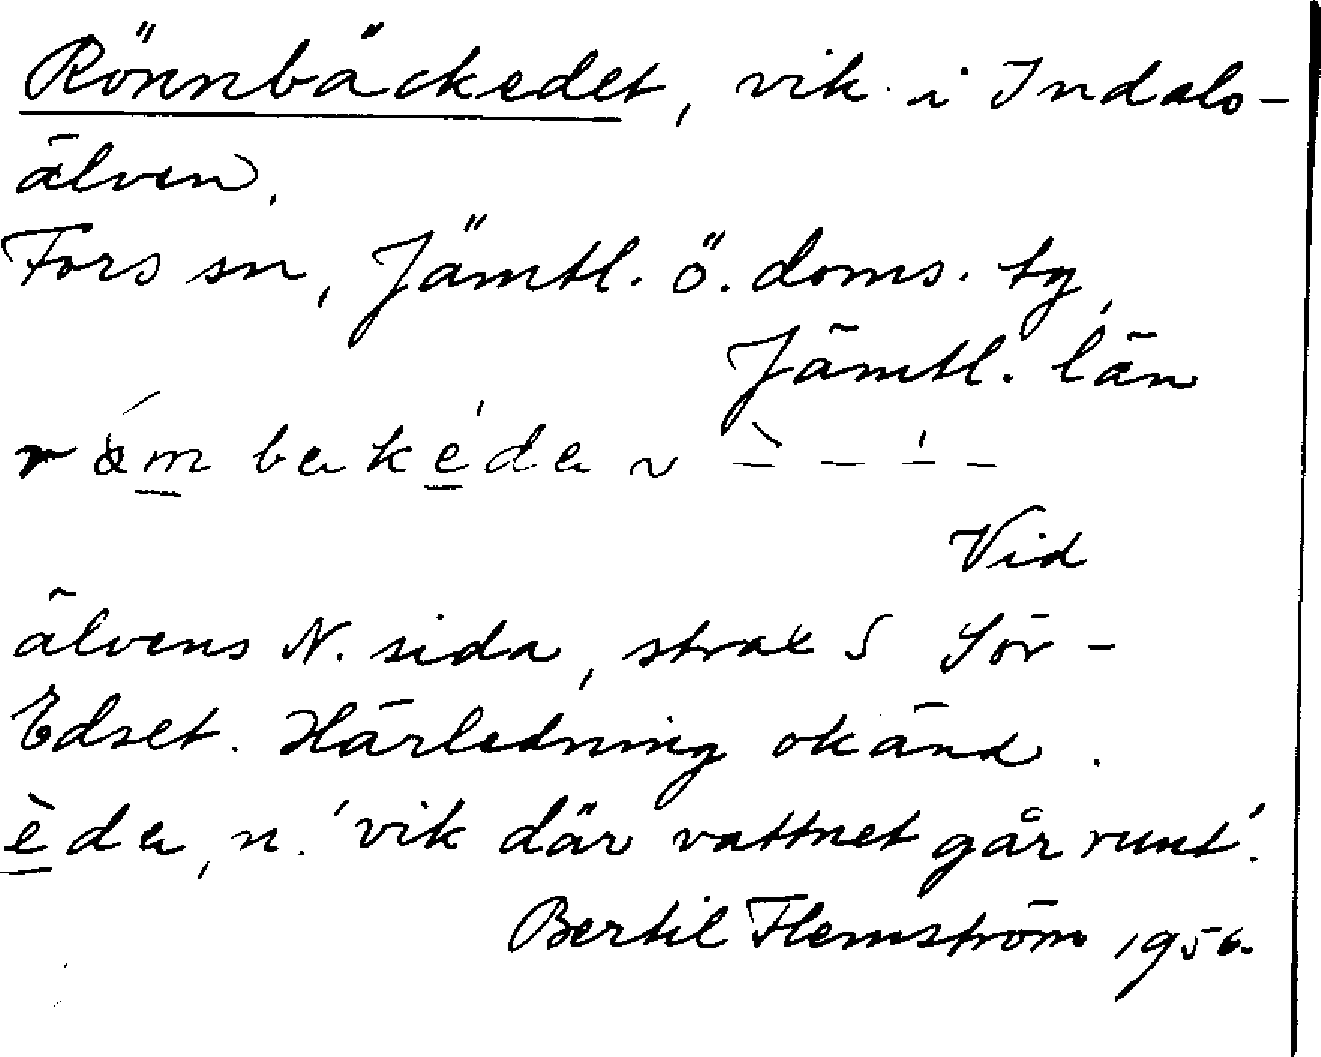 Rönnbäckedet, vik i Indals-
älven.
Fors sn, Jämtl. ö. doms. tg,
Jämtl. län
bakéda ~ \ – – ' –
Vid
älvens N. sida, strax S Sör-
Edset. Härledning okänd.
èda, n. 'vik där vattnet går runt'.
Bertil Flemström 1956.